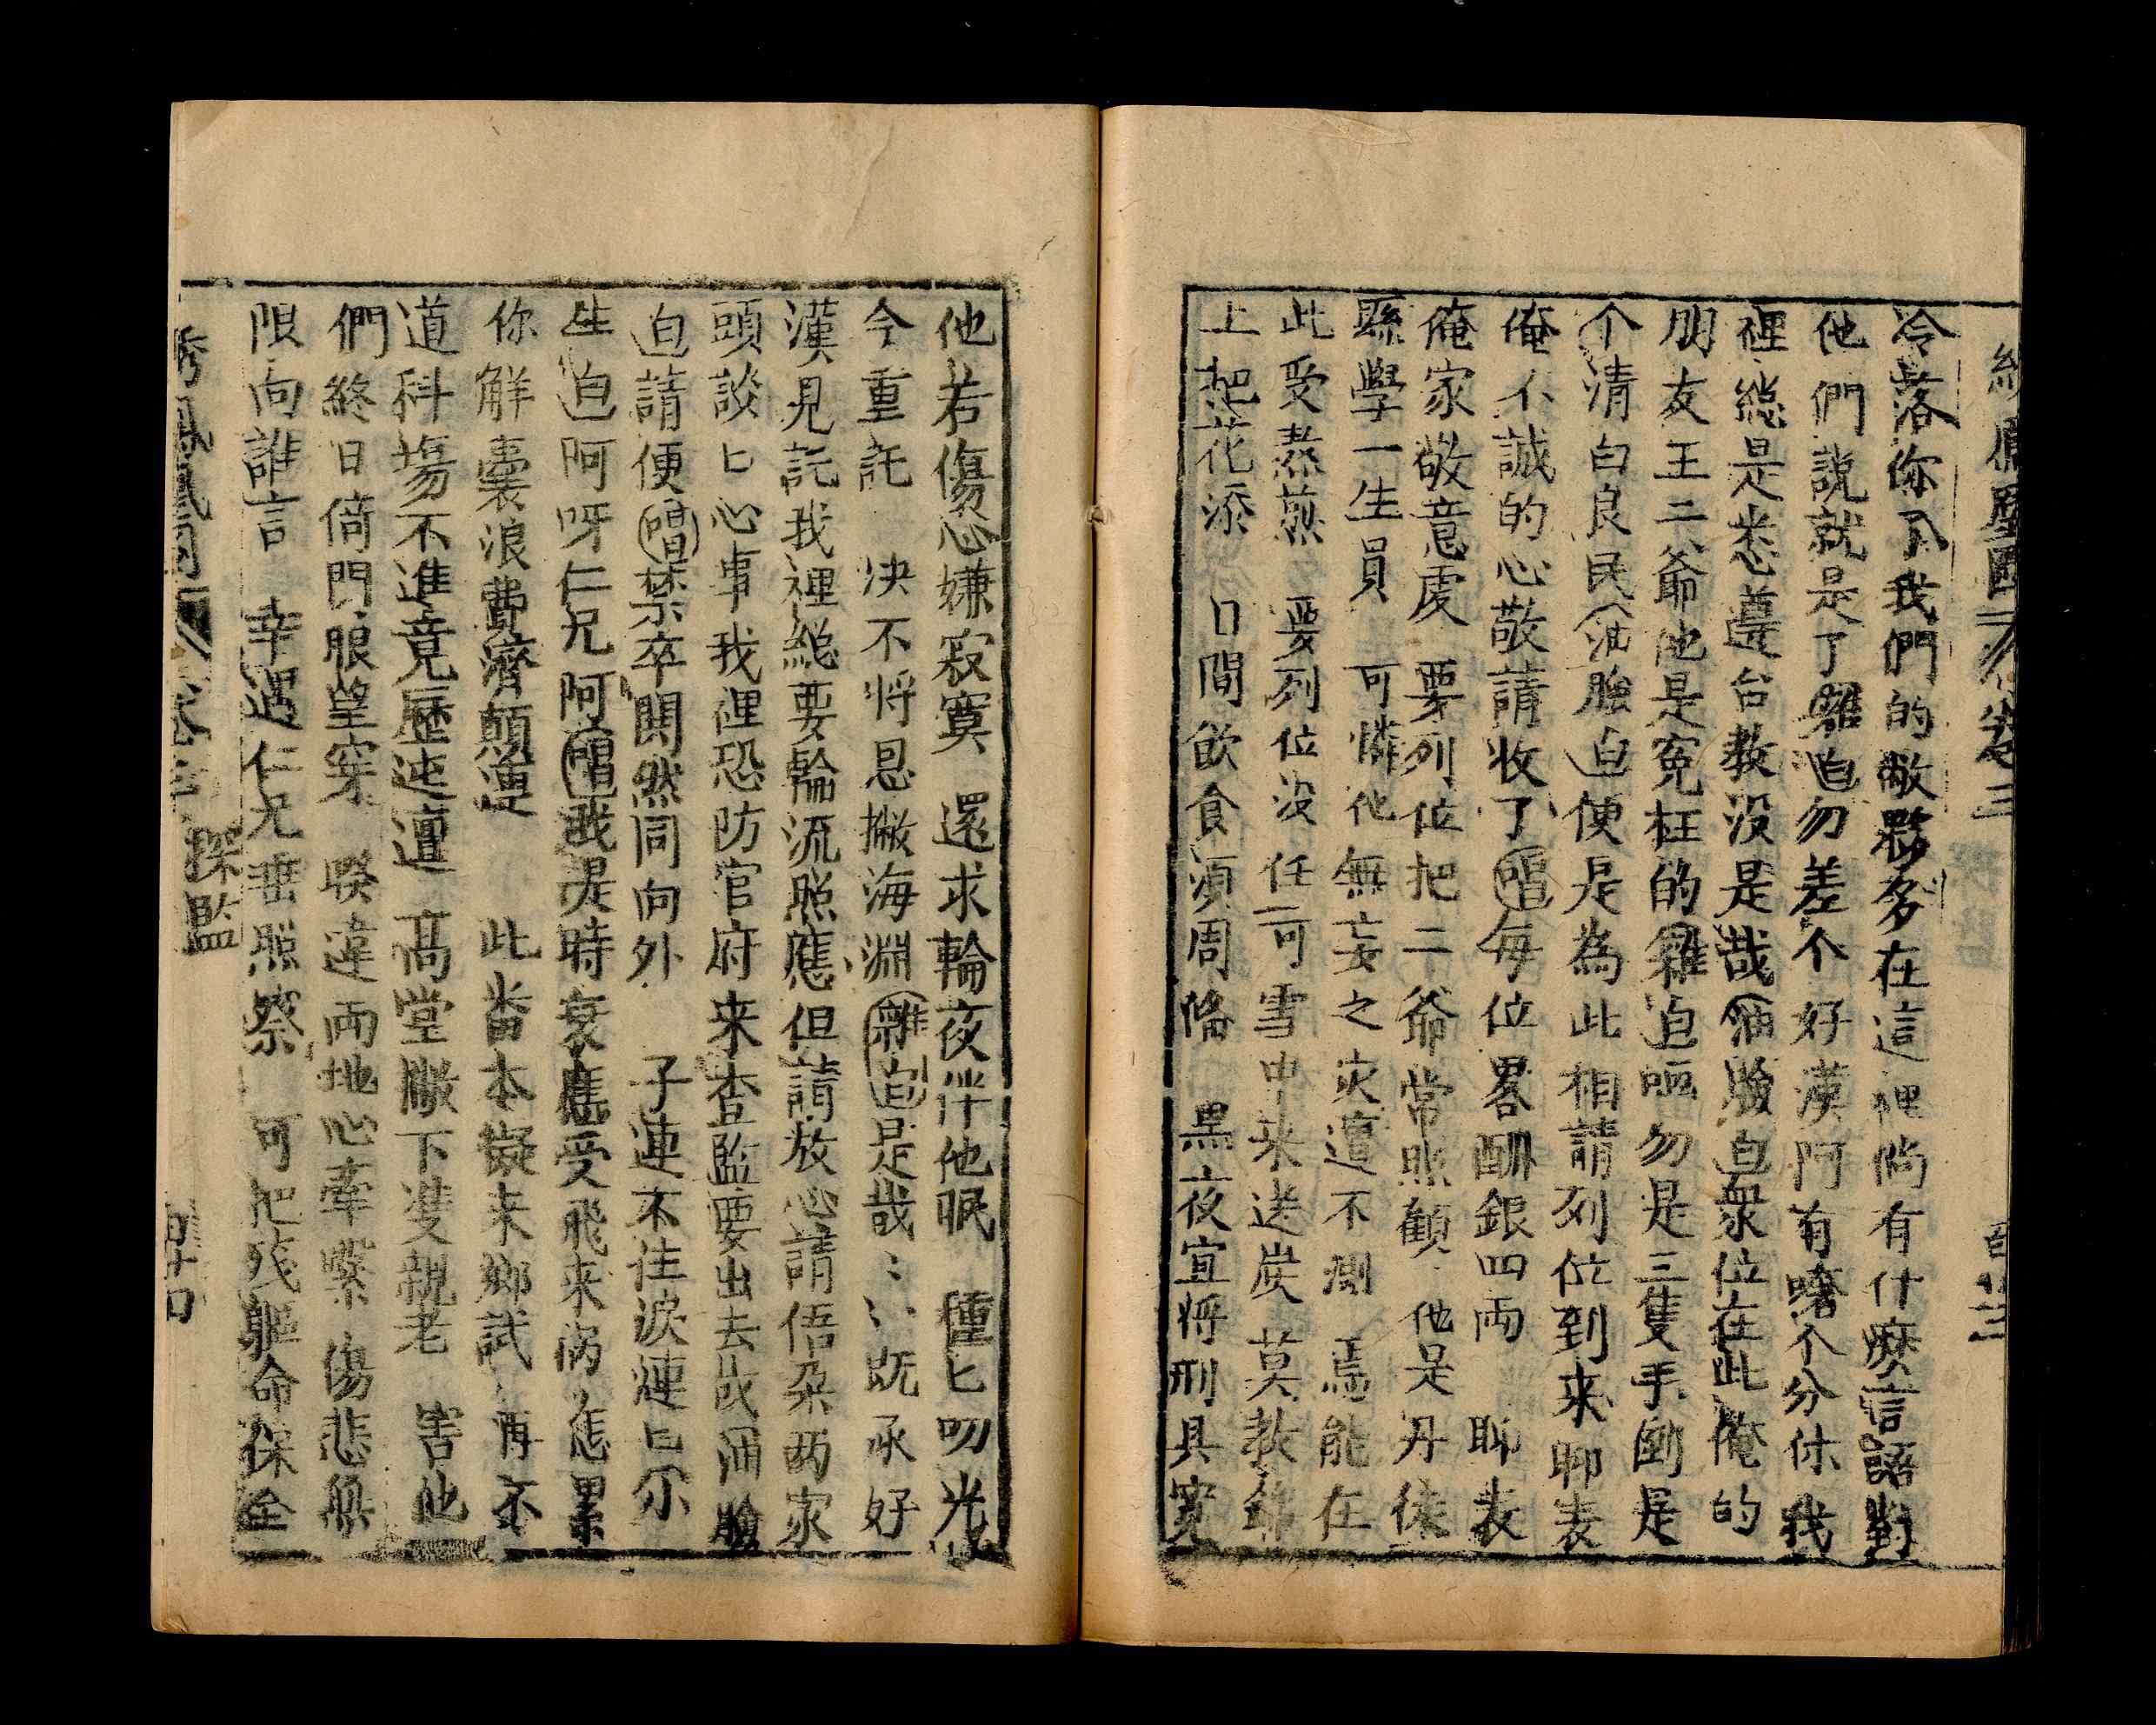 冷落你了我們的敝夥多在這裡倘有什麽言語對
他們説就是了雜白勿差个好漢阿有啥个分付我
裡總是悉遵台教没是哉油臉白衆位在此俺的
朋友王二爺他是寃枉的雜白嘔勿是三隻手倒是
个清白良民油臉白便是為此相請列位到来聊表
俺个誠的心敬請收了唱每位畧酬銀四両 聊表
俺家敬意虔 要列位把二爺常照顧 他是丹徒
縣學一生員 可憐他無妄之灾遭不測 焉能在
此受熬煎 要列位没任可雪中来送炭 莫教錦
上把花添 日間飲食須周俻 黒夜宜将刑具寬
他若傷心嫌寂寞 還求輪夜伴他眠 種匕叨光
今重託 决不将恩撇海淵雜白是哉〻〻既承好
漢見託我裡總要輪流照應但請放心請俉朶两家
頭談匕心事我裡恐防官府来查監要出去哉油臉
白請便唱禁卒閧然同向外 子連不住淚漣匕尔
生白阿呀仁兄阿唱我是時衰應受飛来禍 怎累
你解囊浪費濟顛連 此番本擬来鄉試 再不
道科塲不進竟歷迍邅 髙堂撇下雙親老 害他
們終日倚門眼望穿 暌違両地心牽縈 傷悲無
限向誰言 幸遇仁兄垂照察 可把殘軀命保全
探監